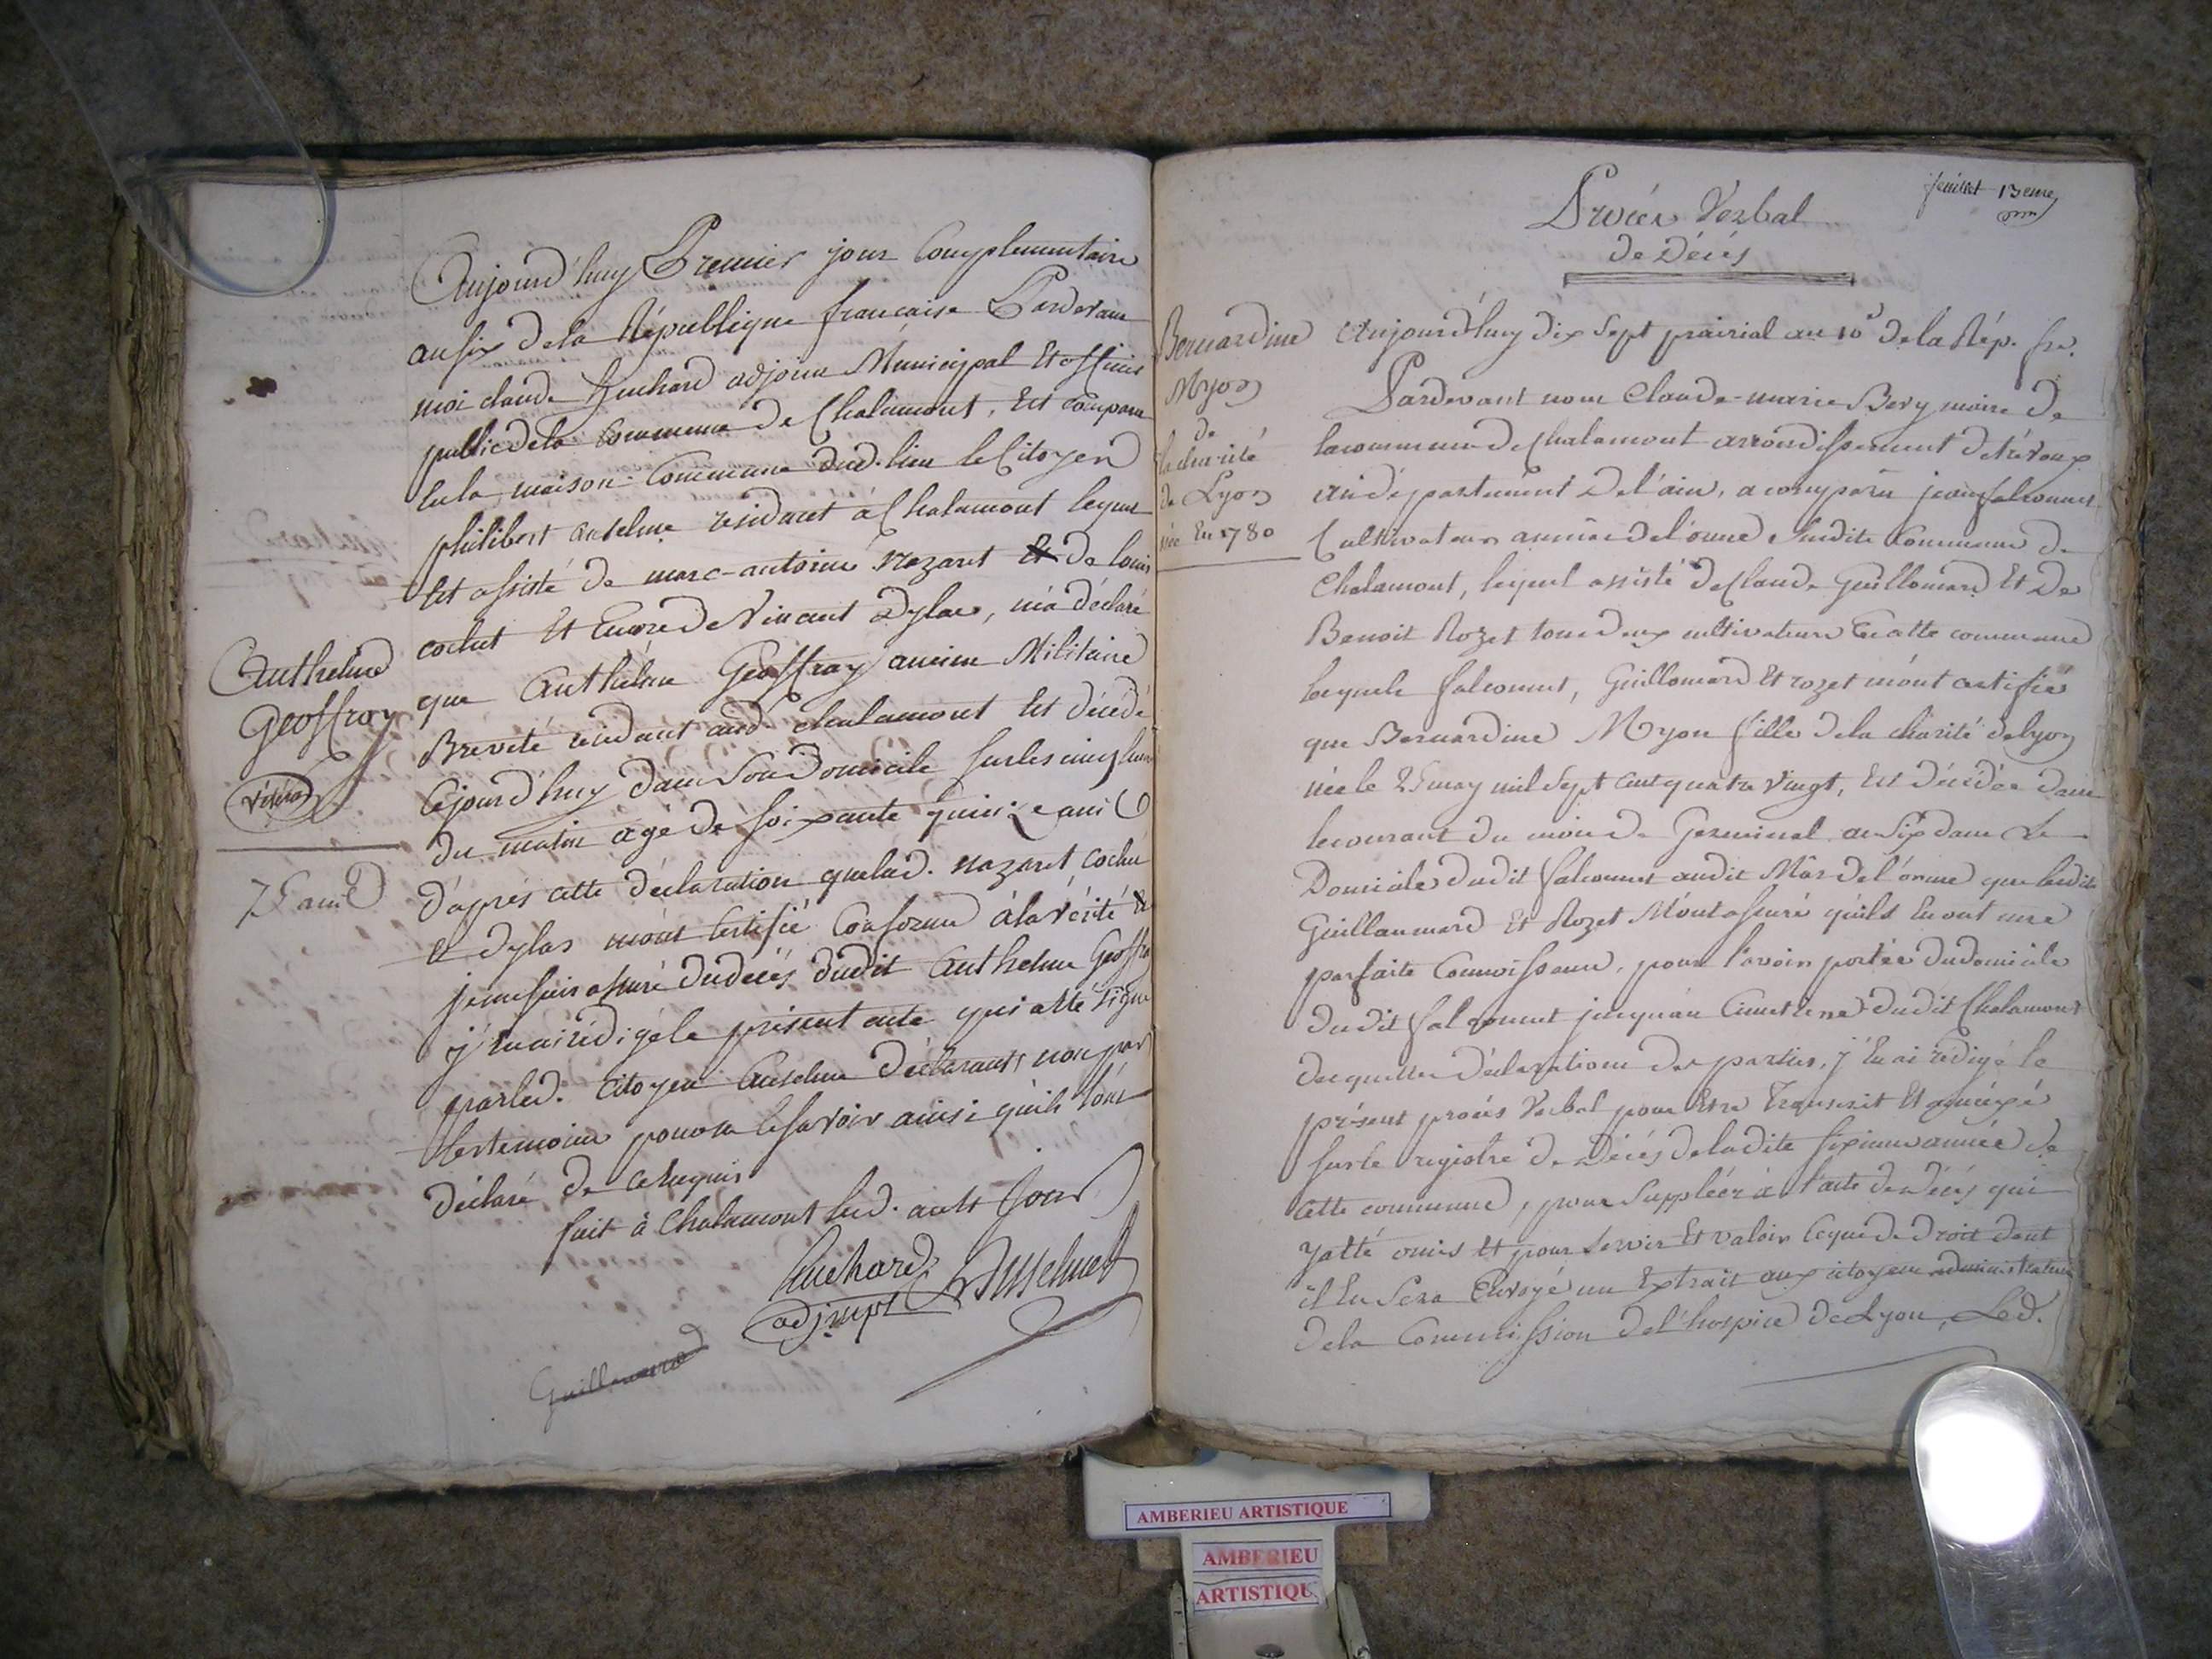 Aujourd'huy Premier jour Complementaire
an six de la République francaise Pardevant
moi claude huchard adjoint Municipal Et officier
public de la Commune de Chalamont, Est comparu
En la maison Commune dud. lieu le Citoyen
philibert anselme residant à Chalamont lequel
Est assisté de marc-antoine Nazaret de louis
cochet Et Encore de Vincent Dylas, m'a déclaré
que Anthelme Geoffray ancien Militaire
Breveté residant aud. chalamont Est décédé
Cejourd'huy dans Son Domicile Sur les cinq heures
du matin agé de soixante quinze ans
d'après cette déclaration que led. Nazaret, cochet
& dylas m'ont Certifié Conforme à la vérité &
je me suis assuré du décés dudit Anthelme Geoffra
j'en ai rédigé le présent acte qui a été signé
par led. Citoyen Anselme déclarant, non par
les temoins pour ne le savoir ainsi qu'ils l'ont
déclaré de ce Requis
fait à Chalamont led. an & Jour
huchard Anselme
adj. mpl
Guillaumard
Anthelme
Geoffroy
75 ans
feuillet 13eme
Procés Verbal
de Décés
Bernardine
Myon
de
la charité
de Lyon
née En 1780
Aujourd'huy dix Sept prairial an 10e de la Rép. fre.
Pardevant nous Claude-marie Bery maire de
la commune de Chalamont arrondissement de trévoux
au département de l'ain, a comparu jean falconnet
Cultivateur au mâs de l'orme Susdite Commune de
Chalamont, lequel assisté de Claude Guillomard Et De
Benoit Rozet tous deux cultivateurs En cette commune
lesquels falconnet, Guillomard Et rozet m'ont certifié
que Bernardine Myon fille de la charité de lyon
née le 25 may mil Sept cent quatre Vingt, Est décédée dans
le courant du mois de Germinal an Six dans le
Domicile dudit falconnet audit Mâs de l'orme que lesdits
Guillaumard Et Rozet M'ont assuré qu'ils En ont une
parfaite Connoissance, pour l'avoir portée du domicile
du dit falconnet jusqu'au Cimetiere dudit Chalamont
desquelles déclarations des parties, j'En ai rédigé le
présent procés Verbal pour Etre Transcrit Et annéxé
sur le registre de Décés de ladite sixieme année de
cette commune, pour Suppléer à l'acte de décés qui
y a été omis Et pour Servir Et valoir Ce que de Droit dont
il En Sera Envoyé un Extrait aux citoyens administrateurs
de la Commission de l'hospice de Lyon, Led.
AMBERIEU ARTISTIQUE
AMBERIEU
ARTISTIQU